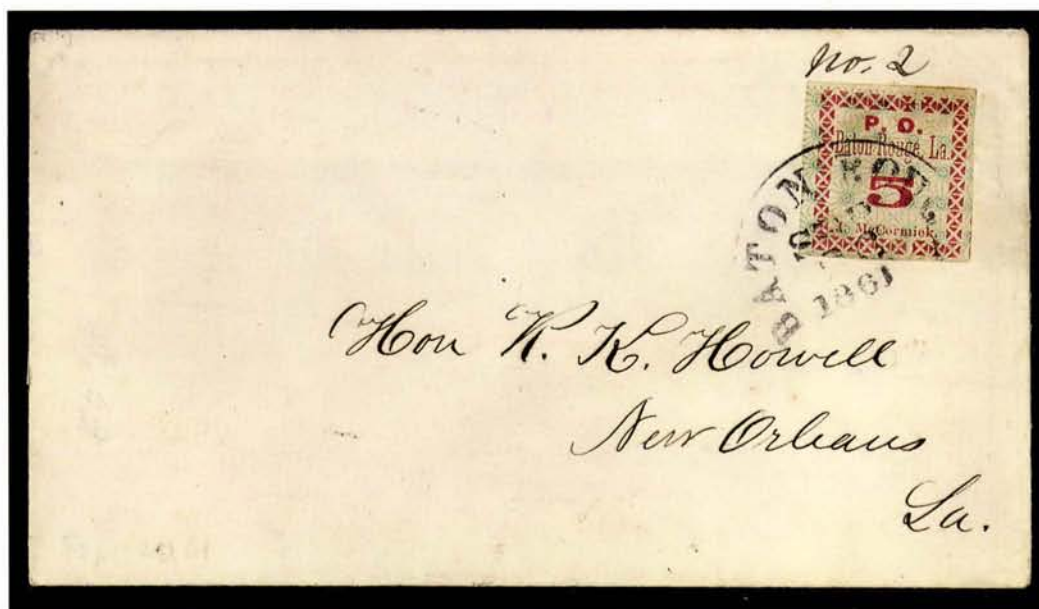 No. 2
P. O.
Baton Rouge, La.
5
McCormick.
BATON ROUGE
1861
Hon R. K. Howell
New Orleans
La.